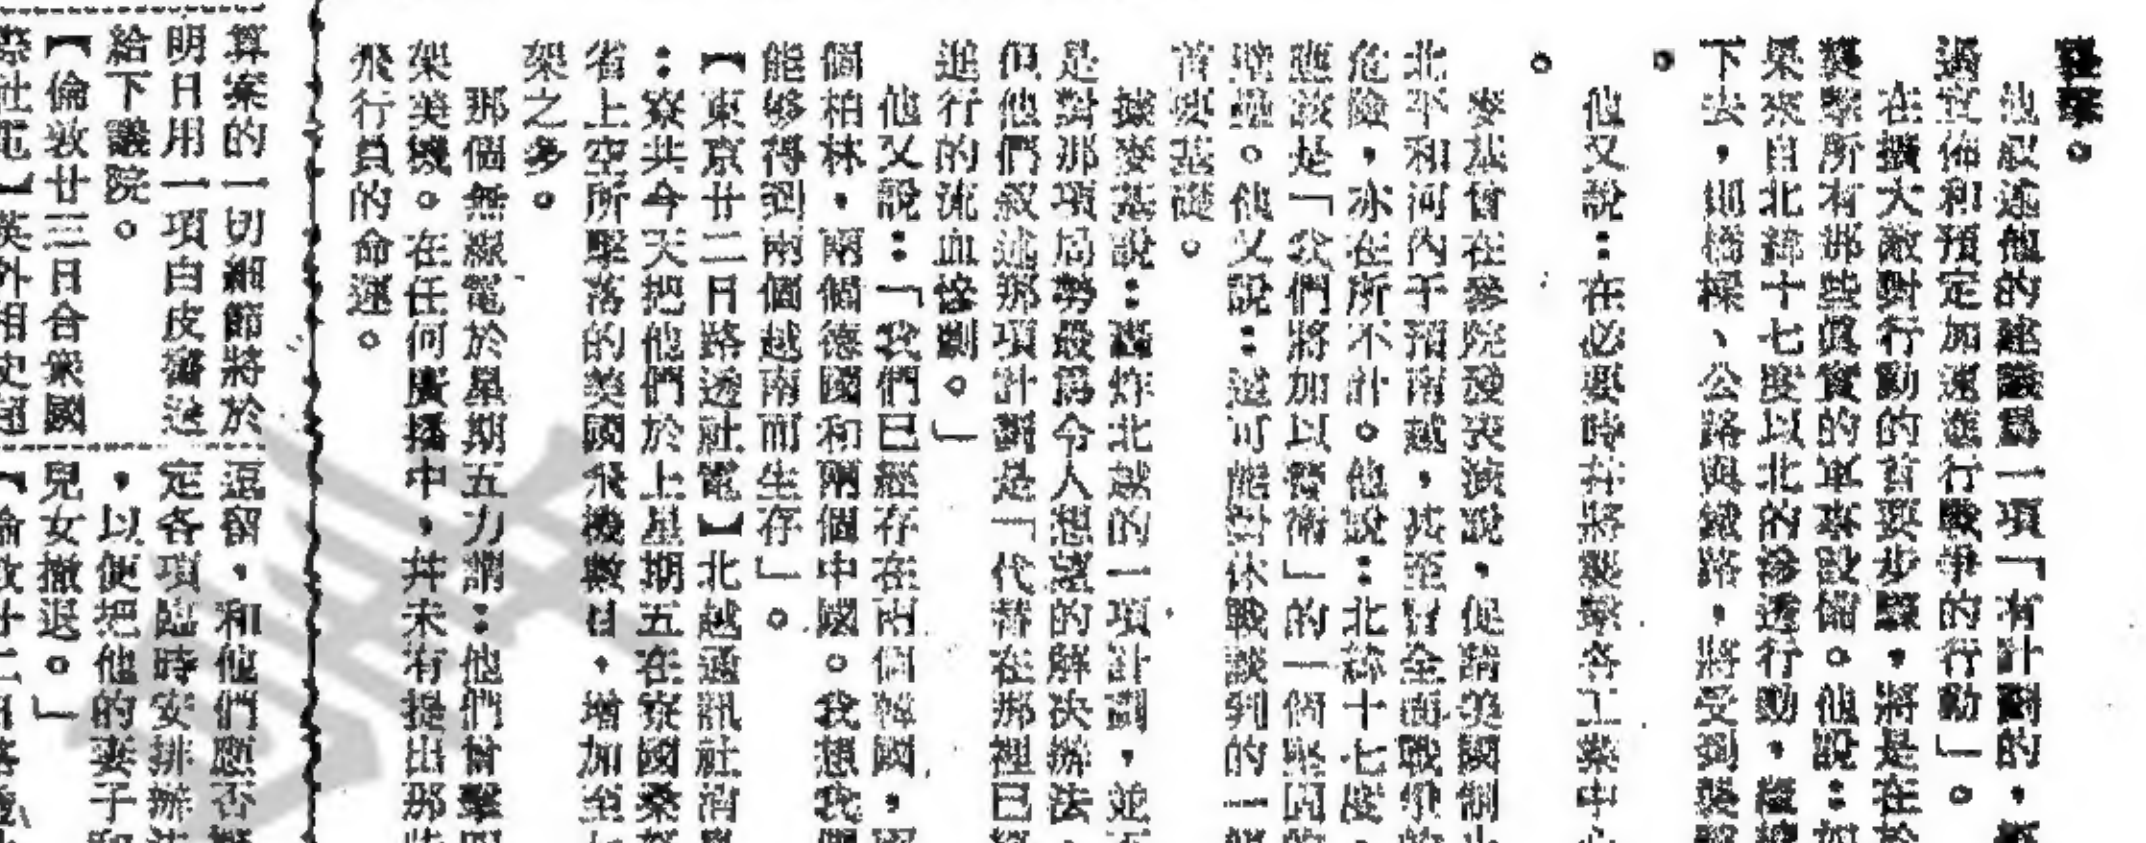 轟炸。
他叙述他的建議爲一項「有計劃的,
過宣佈和預定加速進行戰爭的行動」。
在擴大敵對行動的首要步驟,將是在於
襲擊所有那些眞實的軍事設備。他說:如
果來自北緯十七度以北的滲透行動,繼續
下去,則橋樑、公路與鐵路,將受到襲擊
。
他又說:在必要時并將襲擊各工業中心
。
麥基曾在參院發表演說,促請美國制止
北平和河內干預南越,甚至冒全面戰爭的
危險,亦在所不計。他說:北緯十七度,
應該是「我們將加以警衛」的一個堅固的
壁壘。他又說:這可能對休戰談判的一個
首要基礎。
據麥基說:轟炸北越的一項計劃,並不
是對那項局勢最爲令人想望的解決辦法,
但他們叙述那項計劃是「代替在那裡已經
進行的流血慘劇。」
他又說:「我們已經存在兩個韓國,兩
個柏林,兩個德國和兩個中國。我想我們
能够得到兩個越南而生存」。
【東京廿二日路透社電】北越通訊社消息
:寮共今天把他們於上星期五在寮國桑怒
省上空所擊落的美國飛機數目,增加至七
架之多。
那個無線電於星期五力謂:他們曾擊毀
架美機。在任何廣播中,并未有提出那些
飛行員的命運。
算案的一切細節將於
明日用一項白皮書送
給下議院。
【倫敦廿三日合衆國
際社電】英外相史超
逗留,和他們應否
定各項臨時安排辦法
,以便把他的妻子和
兒女撤退。」